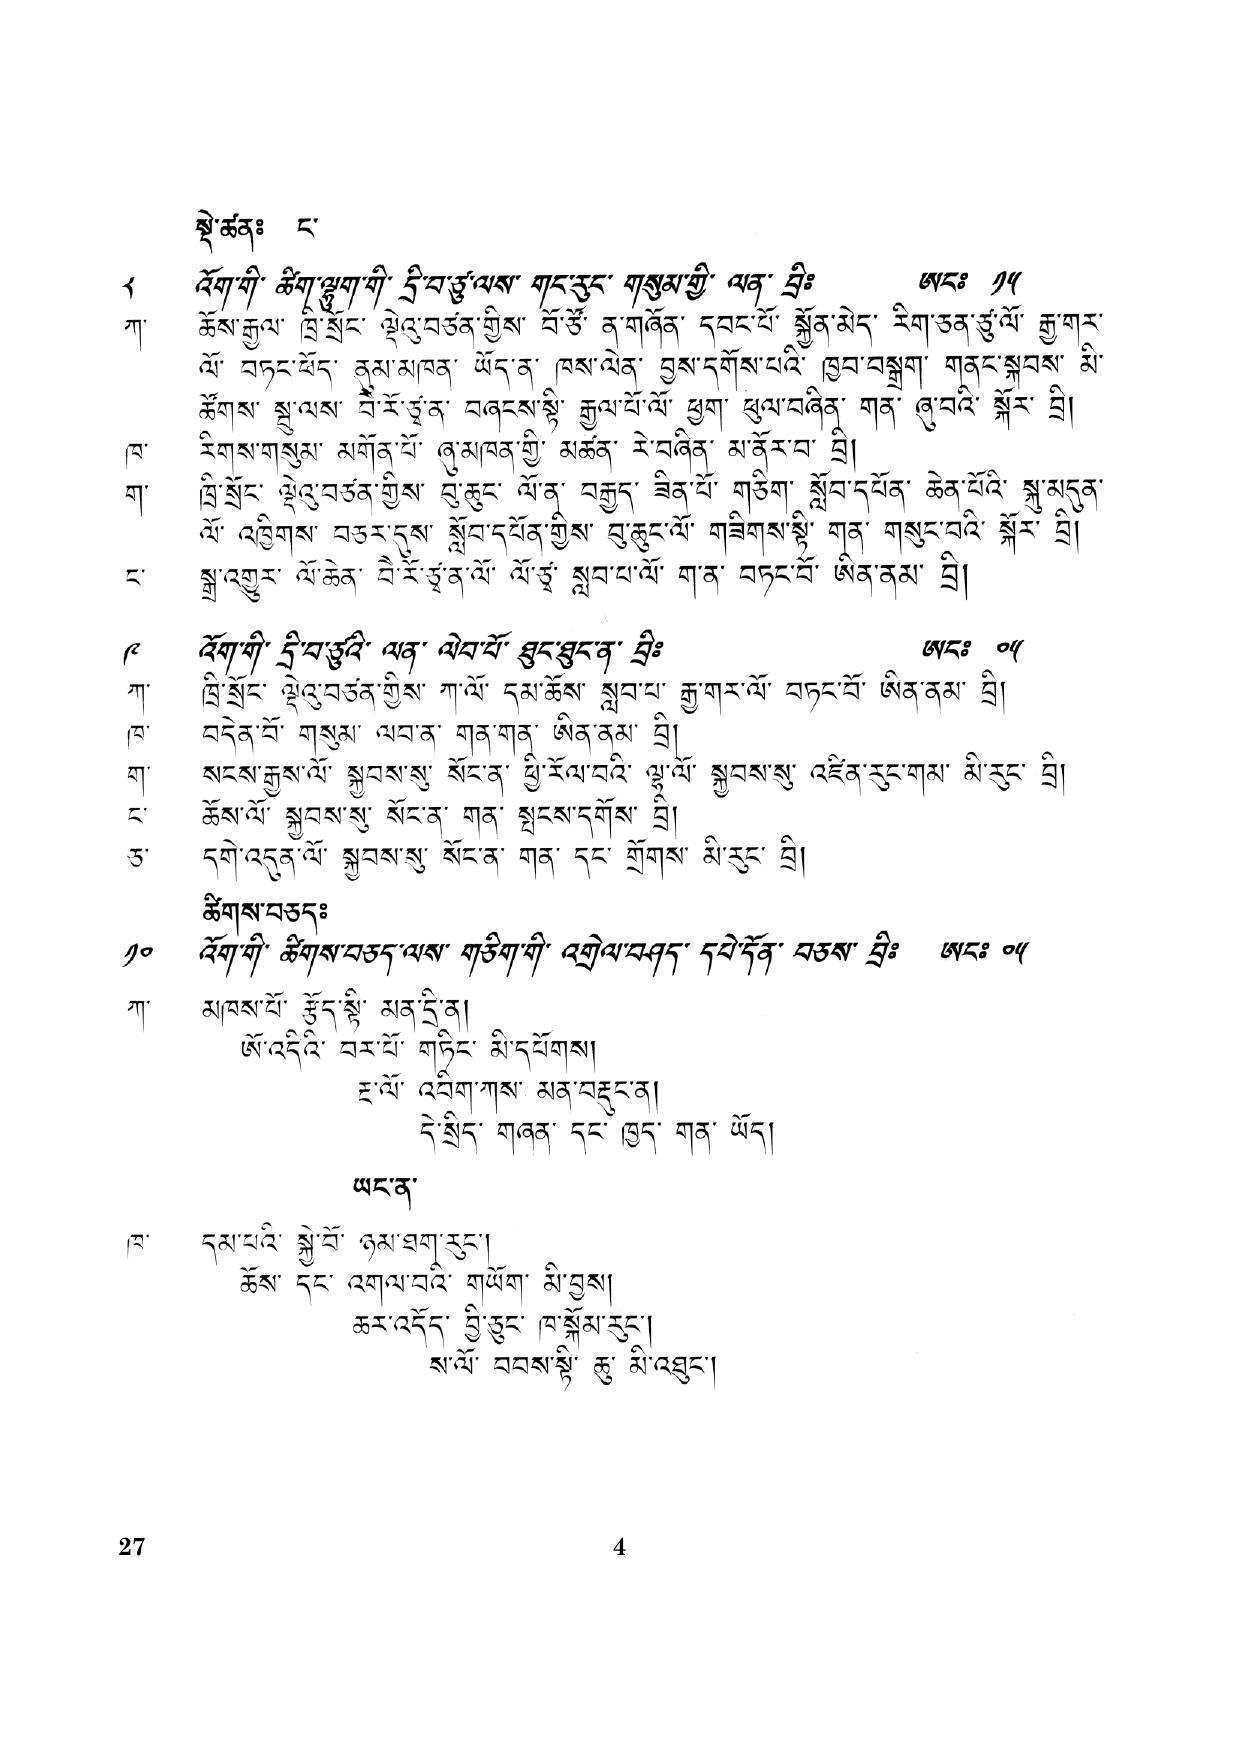 སྡེ་ཚན༔ ང་
༨ འོག་གི་ ཚིག་ལྷུག་གི་ དྲི་བ་ཙུ་ལས་ གང་རུང་ གསུམ་གྱི་ ལན་ བྲི༔ ཨང༔ ༡༥
ཀ་ ཆོས་རྒྱལ་ ཁྲི་སྲོང་ ལྡེའུ་བཙན་གྱིས་ བོ་ཙོ་ ན་གཞོན་ དབང་པོ་ སྐྱོན་མེད་ རིག་ཅན་ཙུ་ལོ་ རྒྱ་གར་
ལོ་ བཏང་ཕོད་ ནུམ་མཁན་ ཡོད་ན་ ཁས་ལེན་ བྱས་དགོས་པའི་ ཁྱབ་བསྒྲག་ གནང་སྐབས་ མི་
ཚོགས་ སྦུ་ལས་ བཻ་རོ་ཙྭ་ན་ བཞངས་སྟི་ རྒྱལ་པོ་ལོ་ ཕྱག་ ཕུལ་བཞིན་ གན་ ཞུ་བའི་ སྐོར་ བྲི།
ཁ་ རིགས་གསུམ་ མགོན་པོ་ ཞུ་མཁན་གྱི་ མཚན་ རེ་བཞིན་ མ་ནོར་བ་ བྲི།
ག་ ཁྲི་སྲོང་ ལྡེའུ་བཙན་གྱིས་ བུ་ཆུང་ ལོ་ན་ བརྒྱད་ ཟིན་པོ་ གཅིག་ སློབ་དཔོན་ ཆེན་པོའི་ སྐུ་མདུན་
ལོ་ འཁྱིགས་ བཅར་དུས་ སློབ་དཔོན་གྱིས་ བུ་ཆུང་ལོ་ གཟིགས་སྟི་ གན་ གསུང་བའི་ སྐོར་ བྲི།
ང་ སྒྲ་འགྱུར་ ལོ་ཆེན་ བཻ་རོ་ཙྭ་ན་ལོ་ ལོ་ཙྭ་ སླབ་པ་ལོ་ ག་ན་ བཏང་བོ་ ཨིན་ནམ་ བྲི།
༩ འོག་གི་ དྲི་བ་ཙུའི་ ལན་ ལེབ་པོ་ ཐུང་ཐུང་ན་ བྲི༔ ཨང༔ ༠༥
ཀ་ ཁྲི་སྲོང་ ལྡེའུ་བཙན་གྱིས་ ཀ་ལོ་ དམ་ཆོས་ སླབ་པ་ རྒྱ་གར་ལོ་ བཏང་བོ་ ཨིན་ནམ་ བྲི།
ཁ་ བདེན་བོ་ གསུམ་ ལབ་ན་ གན་གན་ ཨིན་ནམ་ བྲི།
ག་ སངས་རྒྱས་ལོ་ སྐྱབས་སུ་ སོང་ན་ ཕྱི་རོལ་བའི་ ལྷ་ལོ་ སྐྱབས་སུ་ འཛིན་རུང་གམ་ མི་རུང་ བྲི།
ང་ ཆོས་ལོ་ སྐྱབས་སུ་ སོང་ན་ གན་ སྤངས་དགོས་ བྲི།
ཅ་ དགེ་འདུན་ལོ་ སྐྱབས་སུ་ སོང་ན་ གན་ དང་ གྲོགས་ མི་རུང་ བྲི།
ཚིགས་བཅད༔
༡༠ འོག་གི་ ཚིགས་བཅད་ལས་ གཅིག་གི་ འགྲེལ་བཤད་ དཔེ་དོན་ བཅས་ བྲི༔ ཨང༔ ༠༥
ཀ་ མཁས་པོ་ རྩོད་སྟི་ མན་དྲི་ན།
ཨོ་འདིའི་ བར་པོ་ གཏིང་ མི་དཔོགས།
རྔ་ལོ་ འབིག་ཀས་ མན་བརྡུང་ན།
དེ་སྲིད་ གཞན་ དང་ ཁྱད་ གན་ ཡོད།
ཡང་ན་
ཁ་ དམ་པའི་ སྐྱེ་བོ་ ཉམ་ཐག་རུང་།
ཆོས་ དང་ འགལ་བའི་ གཡོག་ མི་བྱས།
ཆར་འདོད་ བྱི་ཅུང་ ཁ་སྐོམ་རུང་།
ས་ལོ་ བབས་སྟི་ ཆུ་ མི་འཐུང་།
27 4